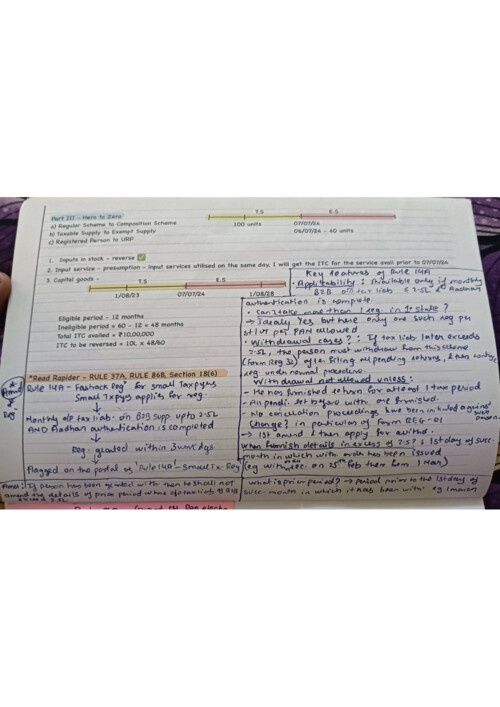 Part III - Hero to Zero
a) Regular Scheme to Composition Scheme
b) Taxable Supply to Exempt Supply
c) Registered Person to URP
T.S E.S
100 units 07/07/24
06/07/24 - 40 units
1. Inputs in stock - reverse ✅
2. Input service - presumption - input services utilised on the same day, I will get the ITC for the service avail prior to 07/07/24
3. Capital goods -
T.S E.S
1/08/23 07/07/24 1/08/28
Eligible period - 12 months
Ineligible period = 60 - 12 = 48 months
Total ITC availed = ₹10,00,000
ITC to be reversed = 10L x 48/60
*Read Rapider - RULE 37A, RULE 86B, Section 18(6)
Rule 14A - Fastrack Regn for small taxpyrs
Small Txpyrs applies for reg.
↓
Monthly o/p tax liab. on B2B supp upto 2.5L
AND Aadhar authentication is completed
↓
Reg. granted within 3 wrkdgs
↓
Flagged on the portal as, 'Rule 14A - Small Tx. Reg'
Reg
If person has been granted with then he shall not
amend the details of prior period
Key features of Rule 14A
• Applicability: Available only if monthly
B2B o/p tax liab ≤ 2.5L & Aadhar
authentication is complete.
• Can I take more than 1 reg. in 1 state?
→ Idealy Yes but here only one such reg per
st/UT per PAN allowed
• Withdrawal cases?: If tax liab later exceeds
2.5L, the person must withdraw from this scheme
(Form Reg 32) after filing all pending returns, & then
reg under normal procedure.
Withdrawal not allowed unless:
- He has furnished return for atleast 1 tax period
- All pendi. ret before with are furnished.
- No cancellation proceedings have been initiated against
Change? in particulars of form REG-01
→ 1st amend & then apply for withd.
When furnish details in excess of 2.5? ↓ 1st day of succ.
month in which with order has been issued
(eg with order on 25th Feb then from 1 Mar)
What is prior period? → Period prior to the 1st day of
succ. month in which it has been with. eg 1 march